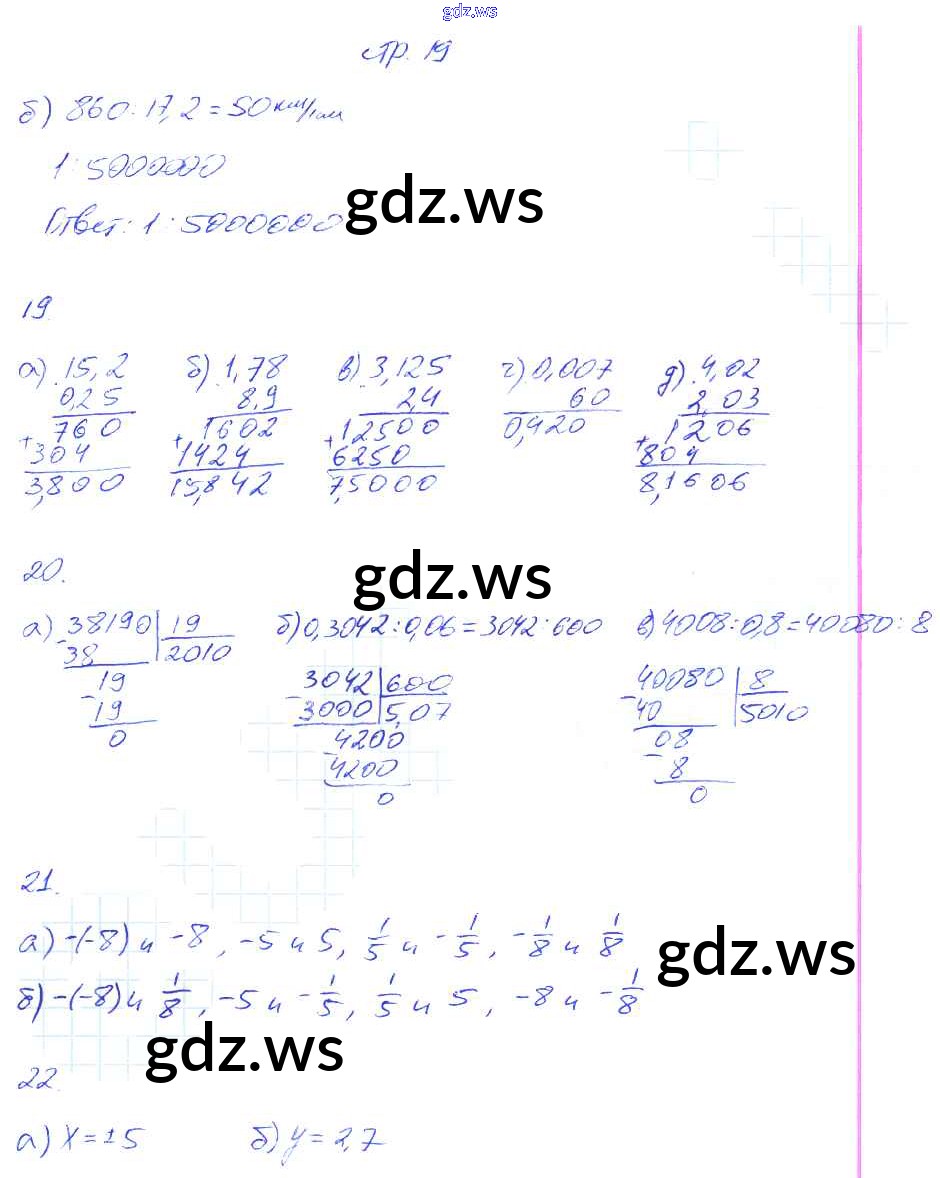 gdz.ws
стр. 19
б) 860 : 17,2 = 50 км/см
1 : 5000000
Ответ: 1 : 5000000
gdz.ws
19.
а) 15,2 б) 1,78 в) 3,125 г) 0,007 д) 4,02
0,25 8,9 2,4 60 2,03
760 1602 12500 0,420 1206
+304 +1424 +6250 +804
3,800 15,842 7,5000 8,1606
gdz.ws
20.
а) 38190 | 19 б) 0,3042 : 0,06 = 3042 : 600 в) 4008 : 0,8 = 40080 : 8
-38 2010
-19 -3042 | 600 -40080 | 8
19 3000 5,07 40 5010
0 -4200 -08
4200 8
0 0
21.
а) -(-8) и -8, -5 и 5, 1/5 и -1/5, -1/8 и 1/8
gdz.ws
б) -(-8) и 1/8, -5 и -1/5, 1/5 и 5, -8 и -1/8
gdz.ws
22.
а) x = ±5 б) y = 2,7